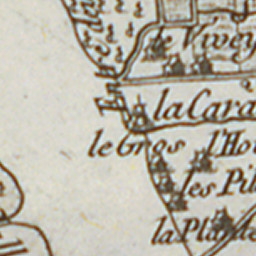 le Vivey
la Cara
le Gros l'Ho
les Pil
la Pla